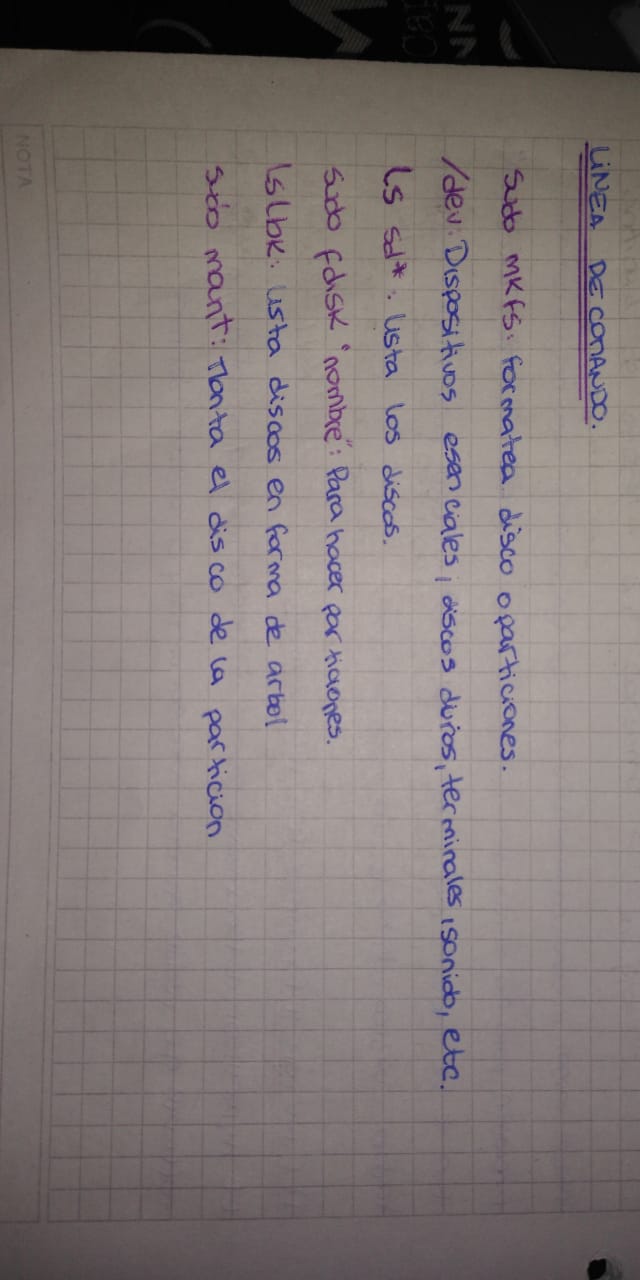 LÍNEA DE COMANDO.
sudo mkfs: formatea disco o particiones.
/dev: Dispositivos esenciales; discos duros, terminales, sonido, etc.
ls sd*: lista los discos.
sudo fdisk "nombre": Para hacer particiones.
lslbk: lista discos en forma de arbol
sudo mant: Monta el disco de la particion
NOTA